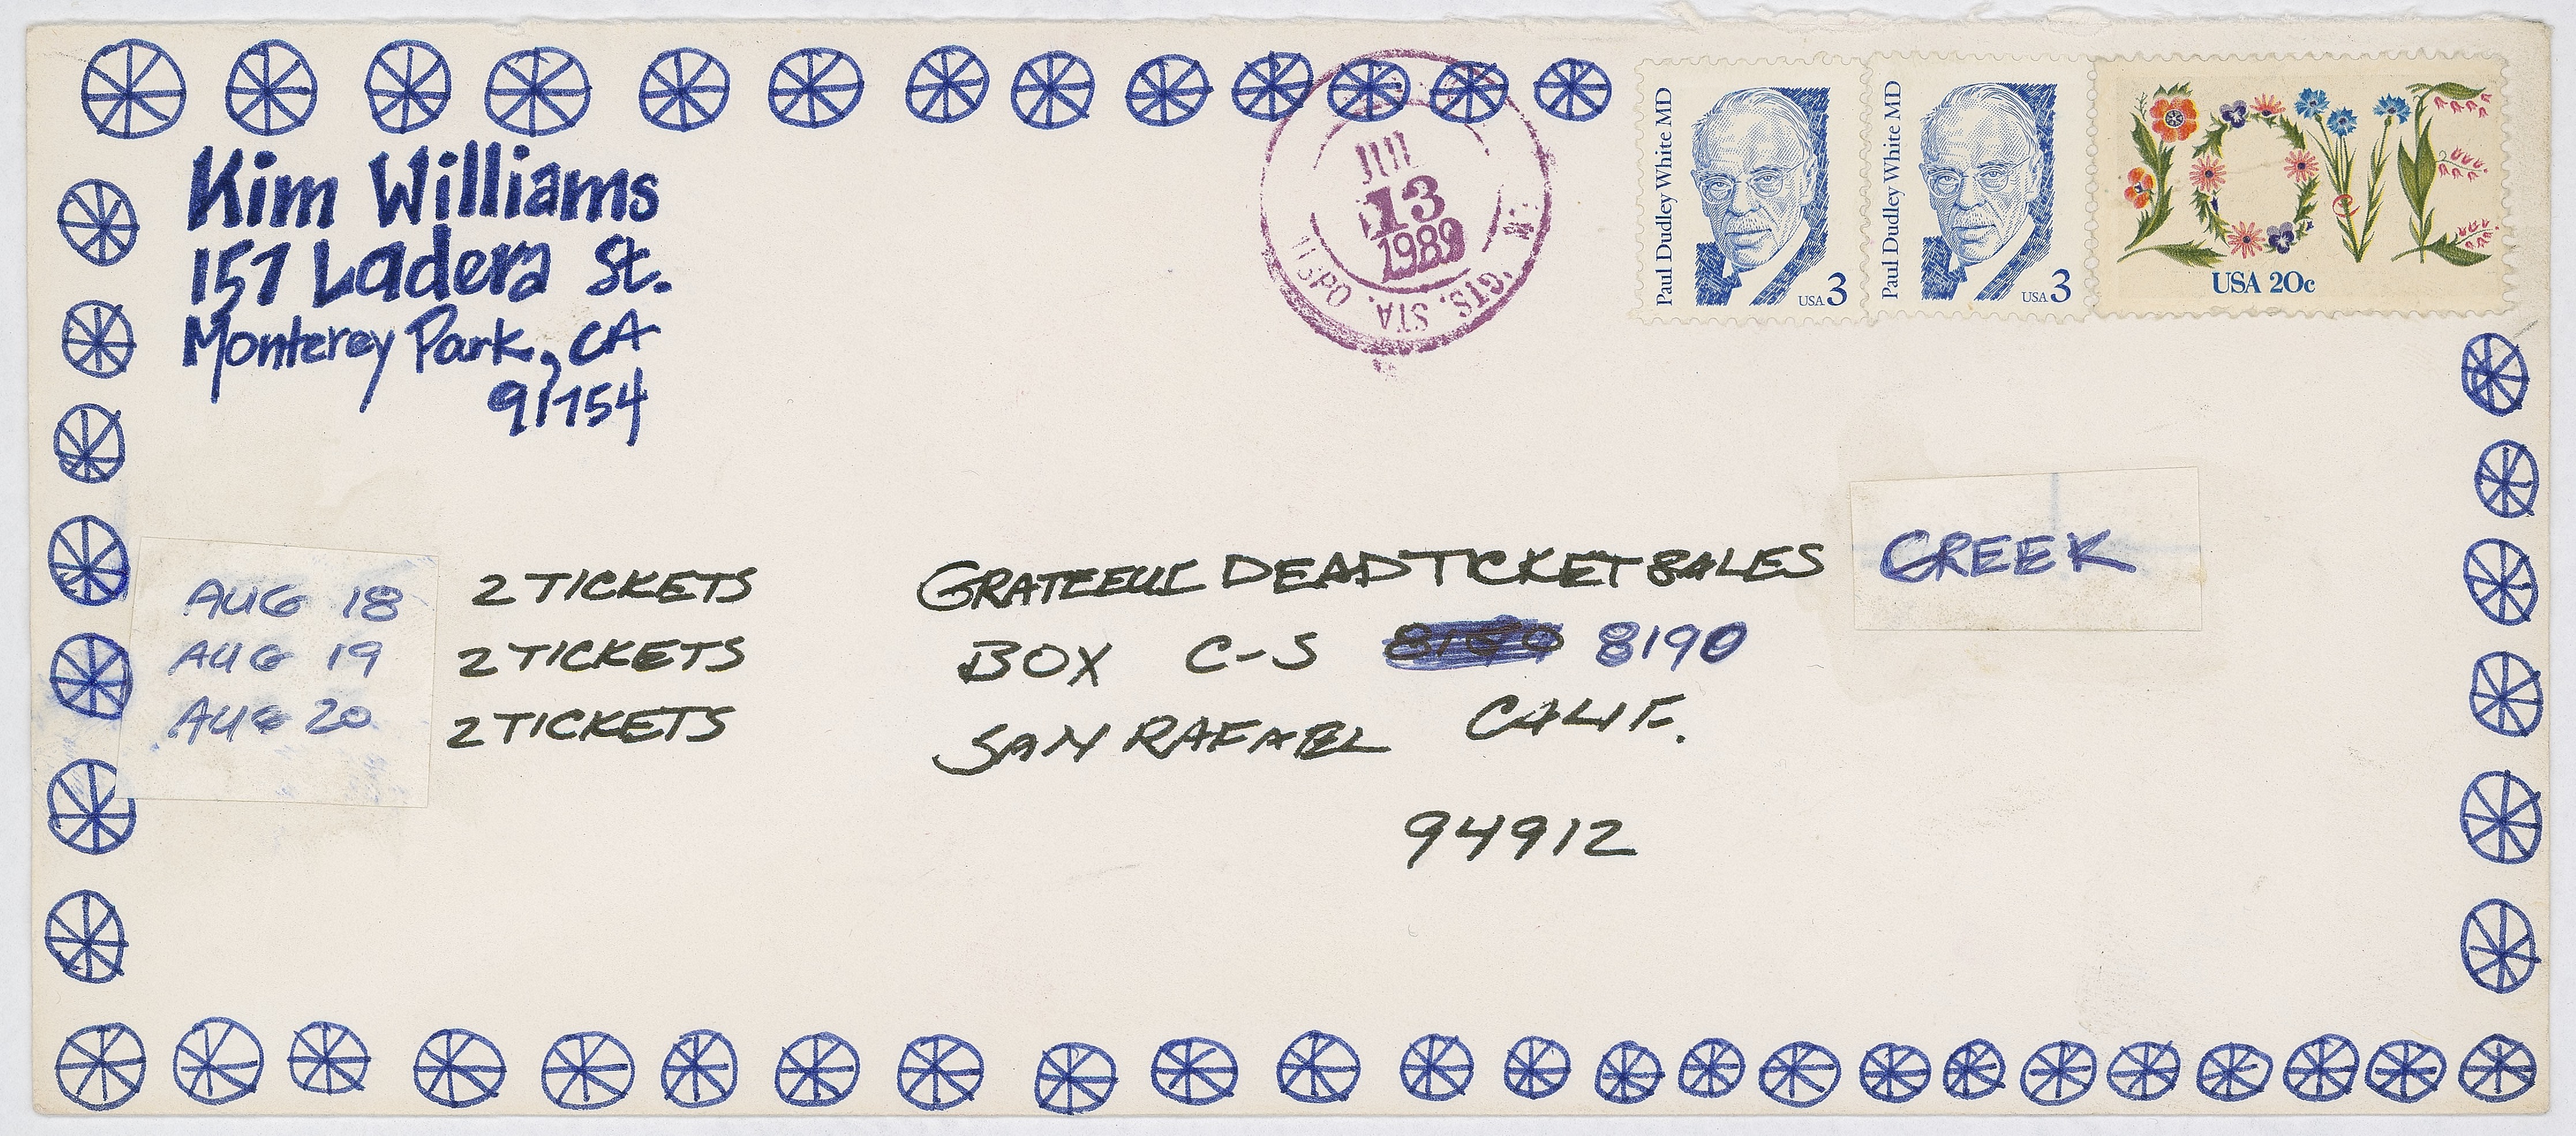 Kim Williams
157 Ladera St.
Monterey Park, CA
91754
JUL
13
1989
USPO
STA.
Paul Dudley White MD
USA 3
Paul Dudley White MD
USA 3
LOVE
USA 20c
AUG 18 2 TICKETS
AUG 19 2 TICKETS
AUG 20 2 TICKETS
GRATEFUL DEAD TICKET SALES GREEK
BOX C-S 8190
SAN RAFAEL CALIF.
94912